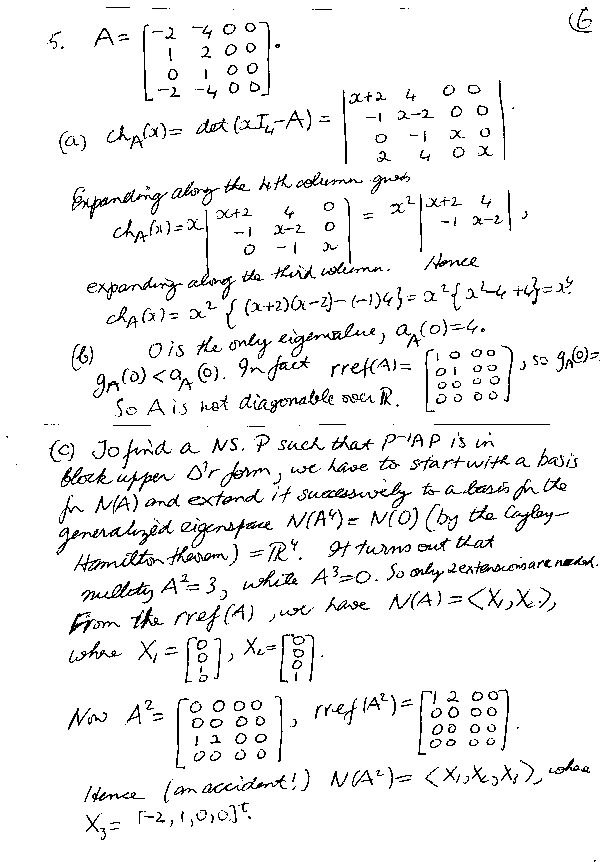 6
5. A = [ -2 -4 0 0
1 2 0 0
0 1 0 0
-2 -4 0 0 ].
(a) ch_A(x) = det(xI₄-A) = | x+2 4 0 0
-1 x-2 0 0
0 -1 x 0
2 4 0 x |.
Expanding along the 4th column gives
ch_A(x) = x | x+2 4 0
-1 x-2 0
0 -1 x | = x² | x+2 4
-1 x-2 |,
expanding along the third column. Hence
ch_A(x) = x² { (x+2)(x-2)-(-1)4 } = x² { x²-4+4 } = x⁴.
(b) 0 is the only eigenvalue, a_A(0)=4.
g_A(0) < a_A(0). In fact rref(A) = [ 1 0 0 0
0 1 0 0
0 0 0 0
0 0 0 0 ], so g_A(0)=
So A is not diagonable over ℝ.
(c) To find a NS. P such that P⁻¹AP is in
block upper Δ'r form, we have to start with a basis
for N(A) and extend it successively to a basis for the
generalized eigenspace N(A⁴) = N(0) (by the Cayley-
Hamilton theorem) = ℝ⁴. It turns out that
nullity A² = 3, while A³=0. So only 2 extensions are needed.
From the rref(A), we have N(A) = ⟨X₁, X₂⟩,
where X₁ = [ 0
0
1
0 ], X₂ = [ 0
0
0
1 ].
Now A² = [ 0 0 0 0
0 0 0 0
1 2 0 0
0 0 0 0 ], rref(A²) = [ 1 2 0 0
0 0 0 0
0 0 0 0
0 0 0 0 ].
Hence (an accident!) N(A²) = ⟨X₁, X₂, X₃⟩, where
X₃ = [-2, 1, 0, 0]ᵗ.